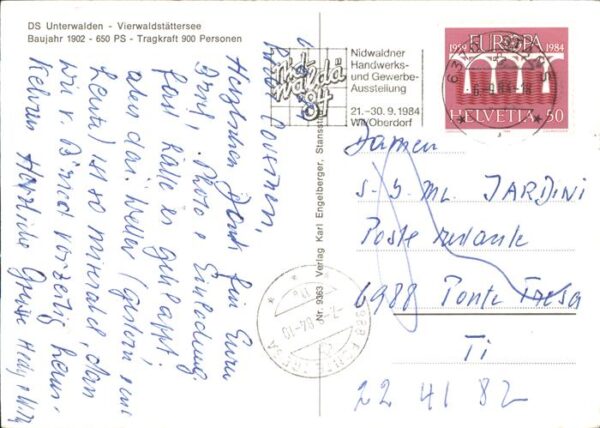 DS Unterwalden - Vierwaldstättersee
Baujahr 1902 - 650 PS - Tragkraft 900 Personen
Herzlichen Dank für Euren
Brief, Photo + Einladung.
Fast hätte es geklappt
aber das Wetter (gestern + une
heute) ist so miserabel, dass
wir v. vorzeitig heim-
kehren Herzliche Grüsse
Nr. 9363 Verlag Karl Engelberger, Stansstad
Nid
walda
84
Nidwaldner
Handwerks-
und Gewerbe-
Ausstellung
21.-30. 9. 1984
Wil/Oberdorf
1959 EUROPA 1984
HELVETIA 50
Damen
S. + ML. JARDINI
Poste restante
6988 Ponte Tresa
Ti
22 41 82
6988 PONTE TRESA